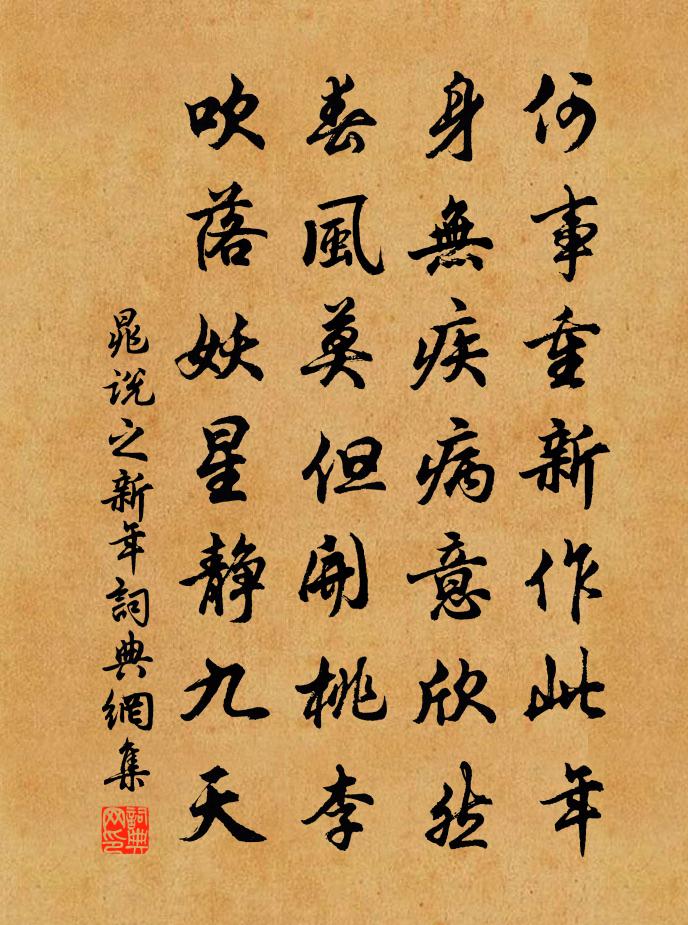 何事重新作此年
身無疾病意欣然
春風莫但開桃李
吹落妖星静九天
晁說之新年詞典網集
詞典网印